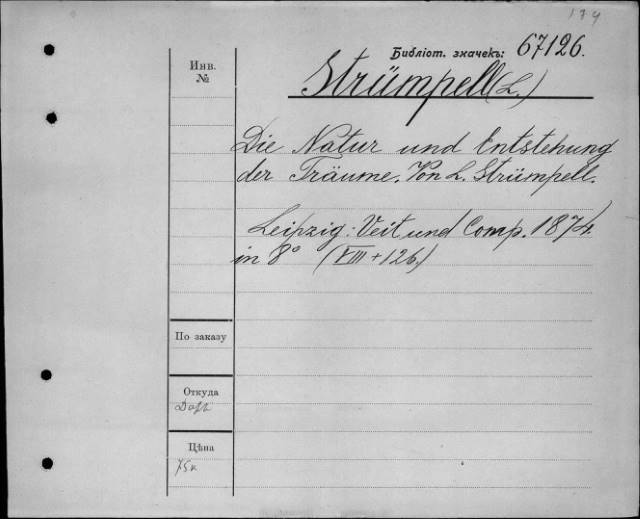 174
Библіот. значекъ: 67126.
Инв.
№
Strümpell (L.)
Die Natur und Entstehung
der Träume. Von L. Strümpell.
Leipzig: Veit und Comp. 1874.
in 8° (VIII + 126.)
По заказу
Откуда
Цѣна
75к